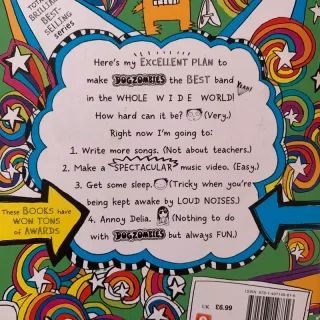 TOTA
BRILLIA
BEST-
SELLING
series
Here's my EXCELLENT PLAN to
make DOGZOMBIES the BEST band
in the WHOLE WIDE WORLD! YEAH!
How hard can it be? (Very.)
Right now I'm going to:
1. Write more songs. (Not about teachers.)
2. Make a SPECTACULAR music video. (Easy.)
3. Get some sleep. (Tricky when you're
being kept awake by LOUD NOISES.)
4. Annoy Delia. (Nothing to do
with DOGZOMBIES but always FUN.)
These BOOKS have
WON TONS
of AWARDS
UK £6.99